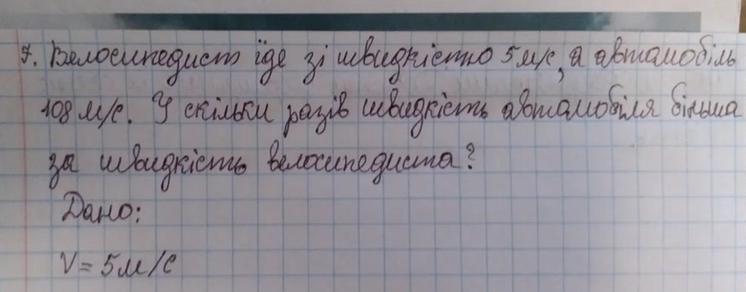 7. Велосипедист їде зі швидкістю 5м/с, а автомобіль
108 м/с. У скільки разів швидкість автомобіля більша
за швидкість велосипедиста?
Дано:
V = 5м/с